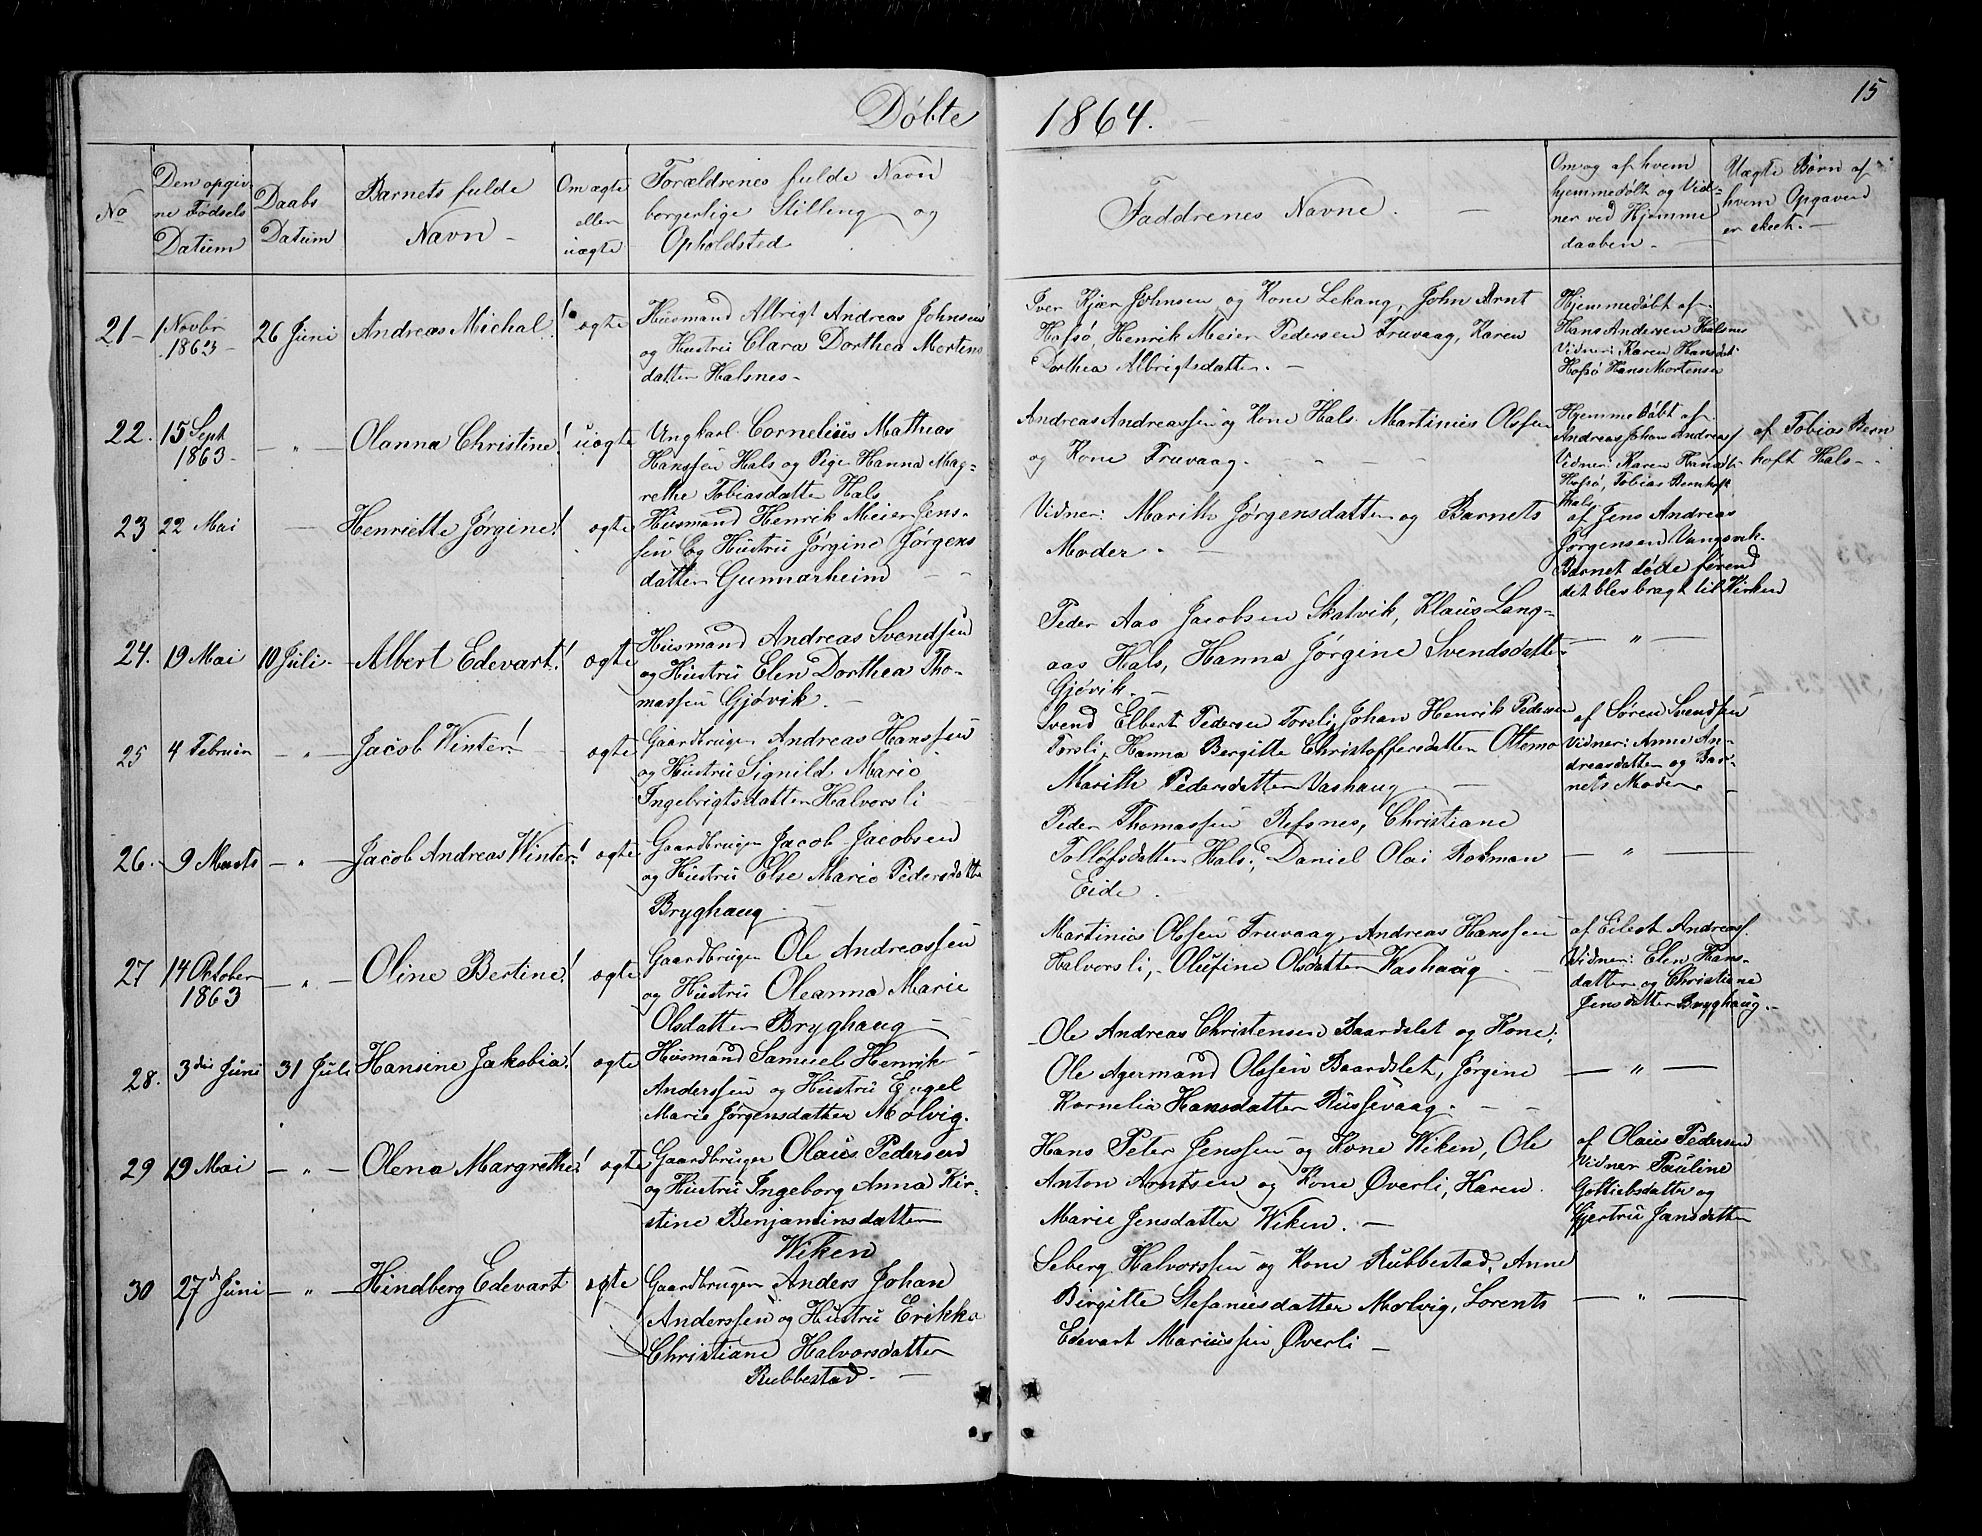 Døbte 1864.
15
No
Den opgiv
ne Fødsels
Datum
Daabs
Datum
Barnets fulde
Navn
Om ægte
eller
uægte
Forældrenes fulde Navn
borgerlige Stilling og
Opholdsted
Faddrenes Navne.
Om og af hvem
hjemmedøbt og Vid-
ner ved Hjemme
daaben.
Uægte Børn af
hvem Opgaven
er skeet.
21
1 Novbr
1863
26 Juni
Andreas Michal!
ægte
Husmand Albrigt Andreas Johnsen
og Hustru Clara Dorthea Mortens
datter Halsnes
Iver Kjær Johnsen og Kone Lekang, John Arnt
Hofsø, Henrik Meier Pedersen Truvaag, Karen
Dorthea Albrigtsdatter.
Hjemmedøbt af
Hans Andersen Halsnes
Vidner: Karen Hansdt
Hofsø Hans Mortensen
22.
15 Sept
1863
- " -
Olanna Christine!
uægte
Ungkarl Cornelius Mathias
Hanssen Hals og Pige Hanna Mag-
rethe Tobiasdatter Hals
Andreas Andreassen og Kone Hals. Martinus Olsen
og Kone Truvaag.
Hjemmedøbt af
Andreas Johan Andreass
Vidner: Karen Hansdt.
Hofsø, Tobias Bernhoft
Hals
af Tobias Bern
hoft Hals
23
22 Mai
-
Henriette Jørgine!
ægte
Husmand Henrik Meier Jens-
sen og Hustru Jørgine Jørgens
datter Gunnarheim
Vidner: Marith Jørgensdatter og Barnets
Moder.
af Jens Andreas
Jørgensen Vangsvik.
Barnet døde førend
det blev bragt til Kirken
24.
19 Mai
10 Juli
Albert Edevart!
ægte
Husmand Andreas Svendsen
og Hustru Elen Dorthea Tho-
massen Gjøvik.
Peder Aas Jacobsen Skatvik, Klaus Lang-
aas Hals, Hanna Jørgine Svendsdatter
Gjøvik.
- " -
25
4 Februar
- " -
Jacob Winter!
ægte
Gaardbruger Andreas Hanssen
og Hustru Signild Marie
Ingebrigtsdatter Halvorsli
Svend Elbert Pedersen Torsli, Johan Henrik Pedersen
Torsli, Hanna Bergitte Christoffersdatter Ottemo
Marith Pedersdatter Vashaug
af Søren Svendsen
Vidner: Anne An-
dreasdatter og Bar-
nets Moder.
26.
9 Marts
- " -
Jacob Andreas Winter!
ægte
Gaardbruger Jacob Jacobsen
og Hustru Else Marie Pedersdatter
Bryghaug
Peder Thomassen Refsnes, Christiane
Tollefsdatter Hals, Daniel Olai Rokman
Eide.
- " -
27
14 October
1863
- " -
Oline Bertine!
ægte
Gaardbruger Ole Andreassen
og Hustru Oleanna Marie
Olsdatter Bryghaug
Martinus Olsen Truvaag, Andreas Hanssen
Halvorsli, Olufine Olsdatter Vashaug
af Eilert Andreass
Vidner: Elen Hans-
datter og Christiane
Jensdatter Bryghaug.
28.
3die Juni
31 Juli
Hansine Jakobia!
ægte
Husmand Samuel Henrik
Anderssen og Hustru Engel
Marie Jørgensdatter Molvig.
Ole Andreas Christensen Baardslet og Kone,
Ole Agermand Olsen Baardslet, Jørgine
Kornelia Hansdatter Russevaag.
- " -
29
19 Mai
- " -
Olena Margrethe!
ægte
Gaardbruger Olaus Pedersen
og Hustru Ingeborg Anna Kir-
stine Benjaminsdatter
Wiken
Hans Peter Jenssen og Kone Wiken, Ole
Anton Arntsen og Kone Øverli, Karen
Marie Jensdatter Wiken.
af Olaus Pedersen
Vidner Pauline
Gottliebsdatter og
Gjertru Jansdatter
30
27de Juni
- " -
Hindberg Edevart
ægte
Gaardbruger Anders Johan
Anderssen og Hustru Erikka
Christiane Halvorsdatter
Rubbestad.
Seberg Halvorssen og Kone Rubbestad, Anne
Birgitte Stefanusdatter Molvig, Lorents
Edevart Mariussen Øverli
- " -